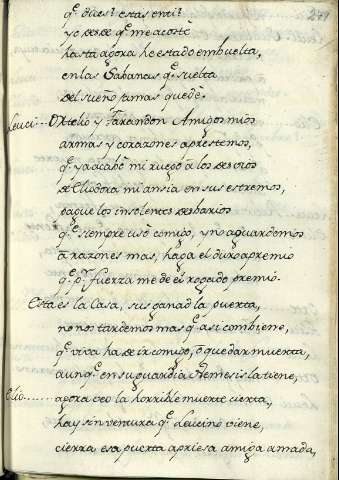 q.e dises? estas en ti?
yo desde q.e me acoste
hasta agora he estado embuelta,
en las Sabanas q.e suelta
del sueño jamas quede.
Leuci... Oxtelio y Tarandon Amigos mios
armas y corazones aprestemos,
q.e ya acabò mi ruego a los desvios
de Cliodora mi ansia en sus estremos,
pague los insolentes desbarios
q.e siempre usò comigo, y no aguardemos
a razones mas, haga el duro apremio
q.e p.r fuerza me de el rogado premio.
Esta es la Casa, sus ganad la puerta,
no nos tardemos mas q.e asi combiene,
q.e viva ha de ir comigo, ò quedar muerta,
aunq.e en su guardia Nemesis la tiene,
Clio...... agora veo la horrible muerte cierta,
hay sin ventura q.e Leucino viene,
cierra esa puerta apriesa amiga amada,